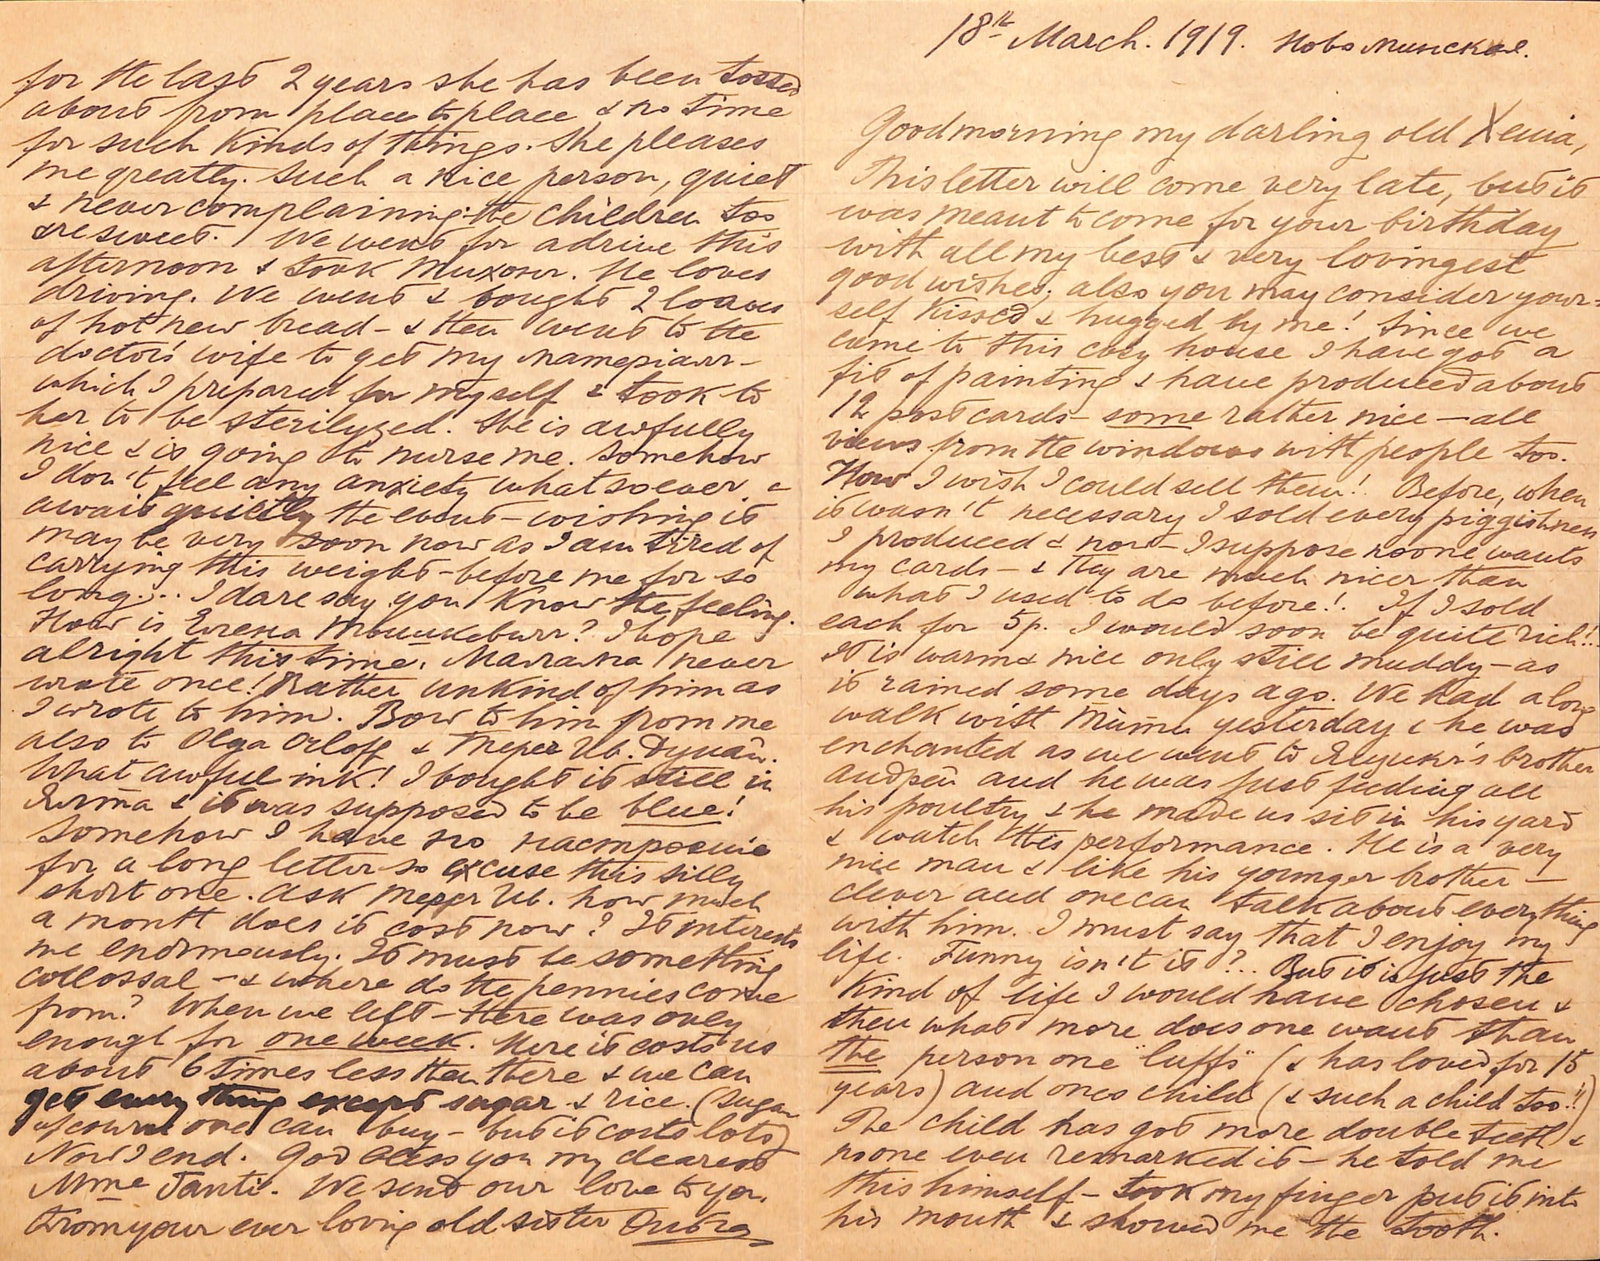 18th March. 1919. Новоминская.
Good morning my darling old Xenia,
This letter will come very late, but it
was meant to come for your birthday
with all my best & very lovingest
good wishes; also you may consider your=
self kissed & hugged by me! Since we
came to this cosy house I have got a
fit of painting & have produced about
12 post cards – some rather nice – all
views from the windows with people too.
How I wish I could sell them! Before, when
it wasn't necessary I sold every piggishness
I produced & now – I suppose no one wants
my cards – & they are much nicer than
what I used to do before! If I sold
each for 5р. I would soon be quite rich!!
It is warm & nice only still muddy – as
it rained some days ago. We had a long
walk with yesterday & he was
enchanted as we went to brother
and he was just feeding all
his poultry & he made us sit in his yard
& watch this performance. He is a very
nice man & like his younger brother –
clever and one can talk about everything
with him. I must say that I enjoy my
life. Funny isn't it?.. But it is just the
kind of life I would have chosen &
then what more does one want than
the person one "luffs" (& has loved for 15
years) and ones child (& such a child too!!)
The child has got more double teeth &
no one even remarked it – he told me
this himself – took my finger put it into
his mouth & showed me the tooth.
for the last 2 years she has been tossed
about from place to place & no time
for such kinds of things. She pleases
me greatly. Such a nice person, quiet
& never complaining. the children too
are sweet. We went for a drive this
afternoon & took Тихон. He loves
driving. We went & bought 2 loaves
of hot new bread – & then went to the
doctors' wife to get my материал –
which I prepared for myself & took to
her to be sterilyzed. She is awfully
nice & is going to nurse me. Somehow
I don't feel any anxiety whatsoever &
await quietly the event – wishing it
may be very soon now as I am tired of
carrying this weight – before me for so
long... I dare say you know the feeling.
How is I hope
alright this time. never
wrote once! Rather unkind of him as
I wrote to him. Bow to him from me
also to Olga Orloff &
What awful ink! I bought it still in
& it was supposed to be blue!
Somehow I have no настроение
for a long letter so excuse this silly
short one. Ask how much
a month does it cost now? It interests
me enormously. It must be something
collossal – & where do the pennies come
from? When we left – there was only
enough for one week. Here it costs us
about 6 times less then there & we can
get every thing except sugar & rice. (Sugar
of course one can buy – but it costs lots)
Now I end. God bless you my dearest
Mme Tanti. We send our love to you.
From your ever loving old sister Ольга